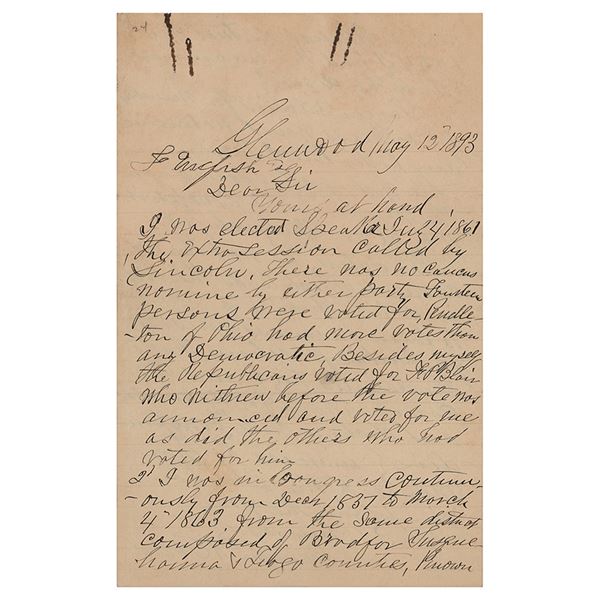 24
Glenwood May 12 1893
T English Esq
Dear Sir
Yours at hand
I was elected Speaker July 4, 1861
the extra session called by
Lincoln. There was no caucus
nomine by either party Fourteen
persons were voted for, Pendle-
ton of Ohio had more votes than
any Democratic, Besides myself
the Republicans voted for F P Blair
who withrew before the vote was
announced and voted for me
as did the others who had
voted for him
2 I was in Congress continu-
ously from Decr 1851 to March
4th 1863, from the same district
composed of Bradfor Susque
hanna & Tioga Counties, Known